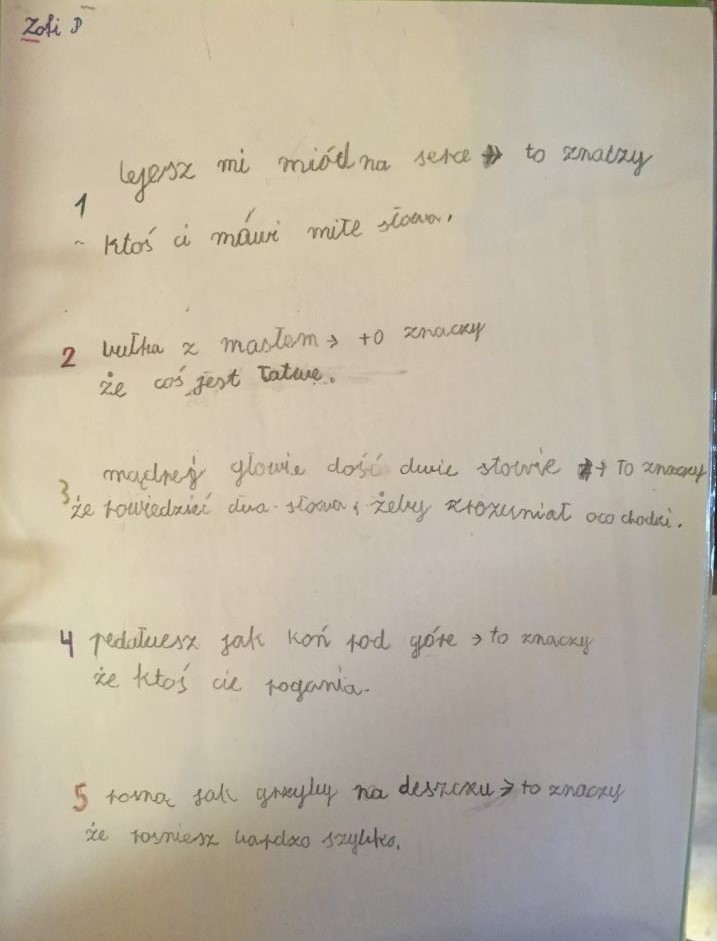 Zofi P
lejesz mi miód na serce → to znaczy
1
ktoś ci máwi miłe słowa.
2 bułka z masłem → to znaczy
że coś jest łatwe.
mądrej głowie dość dwie słowie → to znaczy
3
że powiedzieć dwa słowa, żeby zrozumiał oco chodzi.
4 pedałuesz jak koń pod góre → to znaczy
że ktoś cie pogania.
5 rosną jak grzyby na deszczu → to znaczy
że rosniesz bardzo szybko.